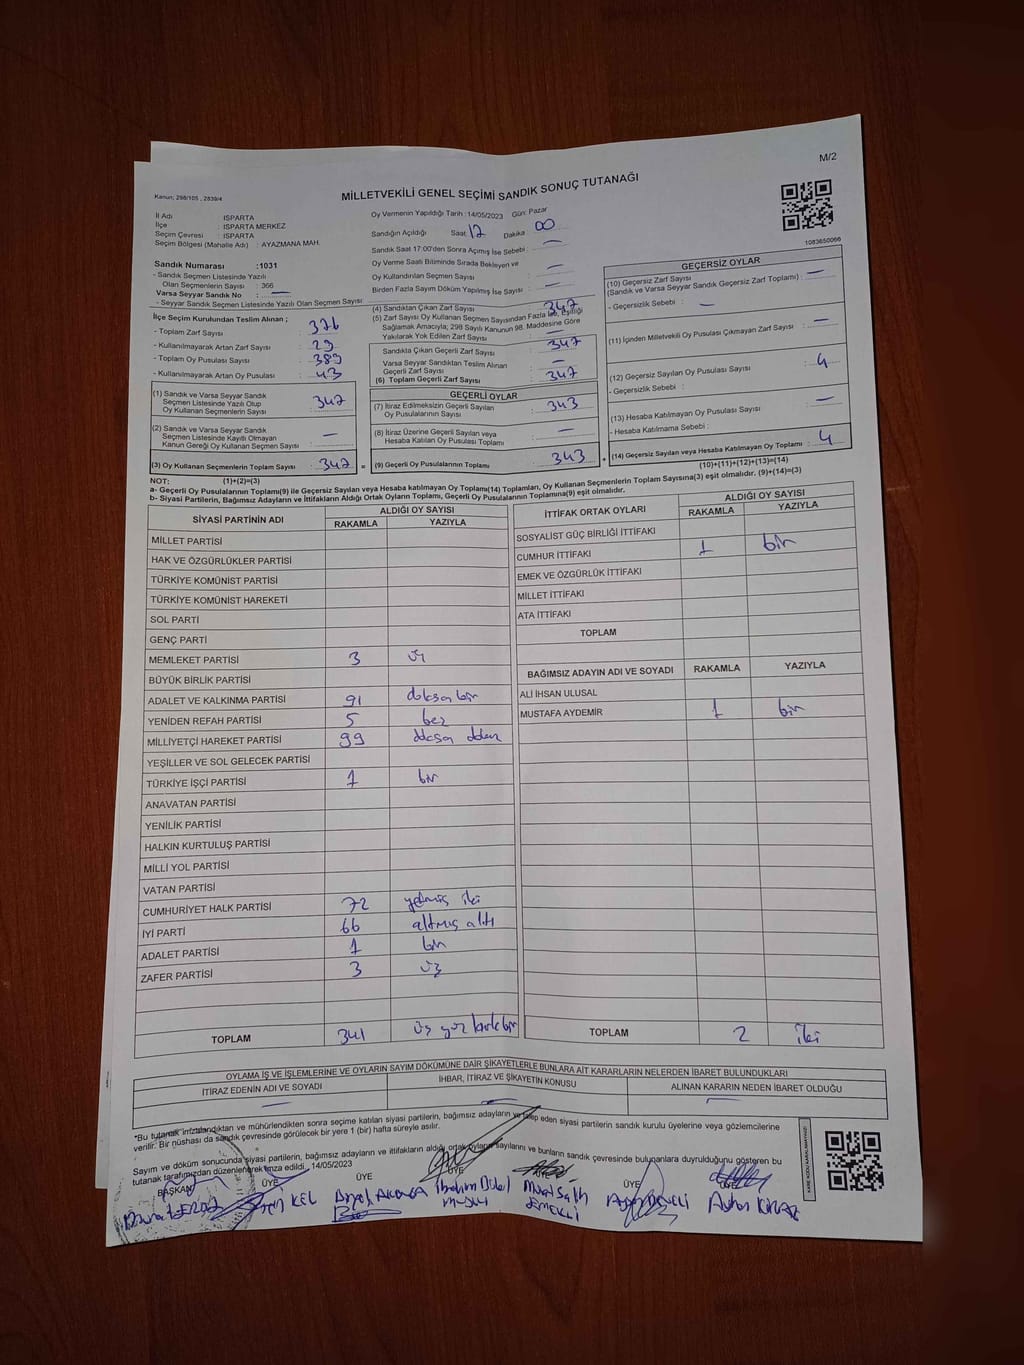 M/2
MİLLETVEKİLİ GENEL SEÇİMİ SANDIK SONUÇ TUTANAĞI
Kanun; 298/105 , 2839/4
İl Adı ISPARTA
İlçe : ISPARTA MERKEZ
Seçim Çevresi : ISPARTA
Seçim Bölgesi (Mahalle Adı) : AYAZMANA MAH.
Sandık Numarası :1031
- Sandık Seçmen Listesinde Yazılı
Olan Seçmenlerin Sayısı : 366
Varsa Seyyar Sandık No : —
- Seyyar Sandık Seçmen Listesinde Yazılı Olan Seçmen Sayısı
İlçe Seçim Kurulundan Teslim Alınan ;
- Toplam Zarf Sayısı : 376
- Kullanılmayarak Artan Zarf Sayısı : 29
- Toplam Oy Pusulası Sayısı : 389
- Kullanılmayarak Artan Oy Pusulası : 43
(1) Sandık ve Varsa Seyyar Sandık
Seçmen Listesinde Yazılı Olup
Oy Kullanan Seçmenlerin Sayısı : 347
(2) Sandık ve Varsa Seyyar Sandık
Seçmen Listesinde Kayıtlı Olmayan
Kanun Gereği Oy Kullanan Seçmen Sayısı : —
(3) Oy Kullanan Seçmenlerin Toplam Sayısı : 347 =
(1)+(2)=(3)
Oy Vermenin Yapıldığı Tarih : 14/05/2023 Gün: Pazar
Sandığın Açıldığı Saat 17 Dakika 00
Sandık Saat 17:00'den Sonra Açımış İse Sebebi : —
Oy Verme Saati Bitiminde Sırada Bekleyen ve
Oy Kullandırılan Seçmen Sayısı : —
Birden Fazla Sayım Döküm Yapılmış İse Sayısı : —
(4) Sandıktan Çıkan Zarf Sayısı : 347
(5) Zarf Sayısı Oy Kullanan Seçmen Sayısından Fazla İse, Eşitliği
Sağlamak Amacıyla; 298 Sayılı Kanunun 98. Maddesine Göre
Yakılarak Yok Edilen Zarf Sayısı : —
Sandıkla Çıkan Geçerli Zarf Sayısı : 347
Varsa Seyyar Sandıktan Teslim Alınan
Geçerli Zarf Sayısı : —
(6) Toplam Geçerli Zarf Sayısı : 347
GEÇERLİ OYLAR
(7) İtiraz Edilmeksizin Geçerli Sayılan
Oy Pusulalarının Sayısı : 343
(8) İtiraz Üzerine Geçerli Sayılan veya
Hesaba Katılan Oy Pusulası Toplamı : —
(9) Geçerli Oy Pusulalarının Toplamı : 343 +
1083650066
GEÇERSİZ OYLAR
(10) Geçersiz Zarf Sayısı
(Sandık ve Varsa Seyyar Sandık Geçersiz Zarf Toplamı) : —
- Geçersizlik Sebebi : —
(11) İçinden Milletvekili Oy Pusulası Çıkmayan Zarf Sayısı : —
(12) Geçersiz Sayılan Oy Pusulası Sayısı : 4
- Geçersizlik Sebebi :
(13) Hesaba Katılmayan Oy Pusulası Sayısı : —
- Hesaba Katılmama Sebebi :
(14) Geçersiz Sayılan veya Hesaba Katılmayan Oy Toplamı : 4
(10)+(11)+(12)+(13)=(14)
NOT:
a- Geçerli Oy Pusulalarının Toplamı(9) ile Geçersiz Sayılan veya Hesaba katılmayan Oy Toplamı(14) Toplamları, Oy Kullanan Seçmenlerin Toplam Sayısına(3) eşit olmalıdır. (9)+(14)=(3)
b- Siyasi Partilerin, Bağımsız Adayların ve İttifakların Aldığı Ortak Oyların Toplamı, Geçerli Oy Pusulalarının Toplamına(9) eşit olmalıdır.
SİYASİ PARTİNİN ADI ALDIĞI OY SAYISI
RAKAMLA YAZIYLA
MİLLET PARTİSİ
HAK VE ÖZGÜRLÜKLER PARTİSİ
TÜRKİYE KOMÜNİST PARTİSİ
TÜRKİYE KOMÜNİST HAREKETİ
SOL PARTİ
GENÇ PARTİ
MEMLEKET PARTİSİ 3 üç
BÜYÜK BİRLİK PARTİSİ
ADALET VE KALKINMA PARTİSİ 91 doksan bir
YENİDEN REFAH PARTİSİ 5 beş
MİLLİYETÇİ HAREKET PARTİSİ 99 doksan dokuz
YEŞİLLER VE SOL GELECEK PARTİSİ
TÜRKİYE İŞÇİ PARTİSİ 1 bir
ANAVATAN PARTİSİ
YENİLİK PARTİSİ
HALKIN KURTULUŞ PARTİSİ
MİLLİ YOL PARTİSİ
VATAN PARTİSİ
CUMHURİYET HALK PARTİSİ 72 yetmiş iki
İYİ PARTİ 66 altmış altı
ADALET PARTİSİ 1 bir
ZAFER PARTİSİ 3 üç
TOPLAM 341 üç yüz kırk bir
İTTİFAK ORTAK OYLARI ALDIĞI OY SAYISI
RAKAMLA YAZIYLA
SOSYALİST GÜÇ BİRLİĞİ İTTİFAKI
CUMHUR İTTİFAKI 1 bir
EMEK VE ÖZGÜRLÜK İTTİFAKI
MİLLET İTTİFAKI
ATA İTTİFAKI
TOPLAM
BAĞIMSIZ ADAYIN ADI VE SOYADI RAKAMLA YAZIYLA
ALİ İHSAN ULUSAL
MUSTAFA AYDEMİR 1 bir
TOPLAM 2 iki
OYLAMA İŞ VE İŞLEMLERİNE VE OYLARIN SAYIM DÖKÜMÜNE DAİR ŞİKAYETLERLE BUNLARA AİT KARARLARIN NELERDEN İBARET BULUNDUKLARI
İTİRAZ EDENİN ADI VE SOYADI İHBAR, İTİRAZ VE ŞİKAYETİN KONUSU ALINAN KARARIN NEDEN İBARET OLDUĞU
— — —
*Bu tutanak imzalandıktan ve mühürlendikten sonra seçime katılan siyasi partilerin, bağımsız adayların ve talep eden siyasi partilerin sandık kurulu üyelerine veya gözlemcilerine
verilir. Bir nüshası da sandık çevresinde görülecek bir yere 1 (bir) hafta süreyle asılır.
Sayım ve döküm sonucunda siyasi partilerin, bağımsız adayların ve ittifakların aldığı ortak oyların sayılarını ve bunların sandık çevresinde bulunanlara duyrulduğunu gösteren bu
tutanak tarafımızdan düzenlenerek imza edildi. 14/05/2023
BAŞKAN ÜYE ÜYE ÜYE ÜYE ÜYE
KEL İbrahim Murat Salih Ayhan